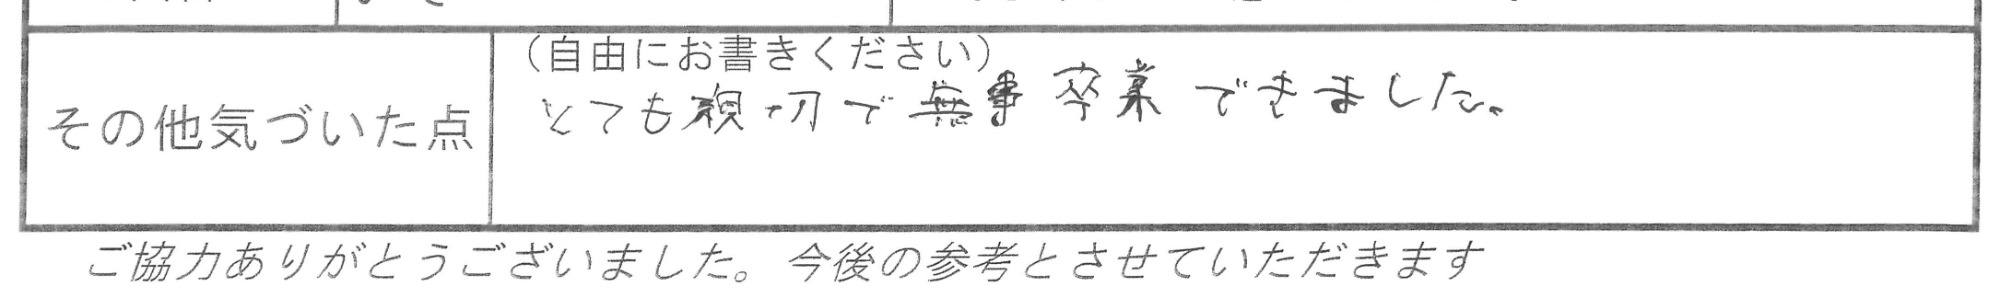 その他気づいた点
（自由にお書きください）
とても親切で無事卒業できました。
ご協力ありがとうございました。今後の参考とさせていただきます